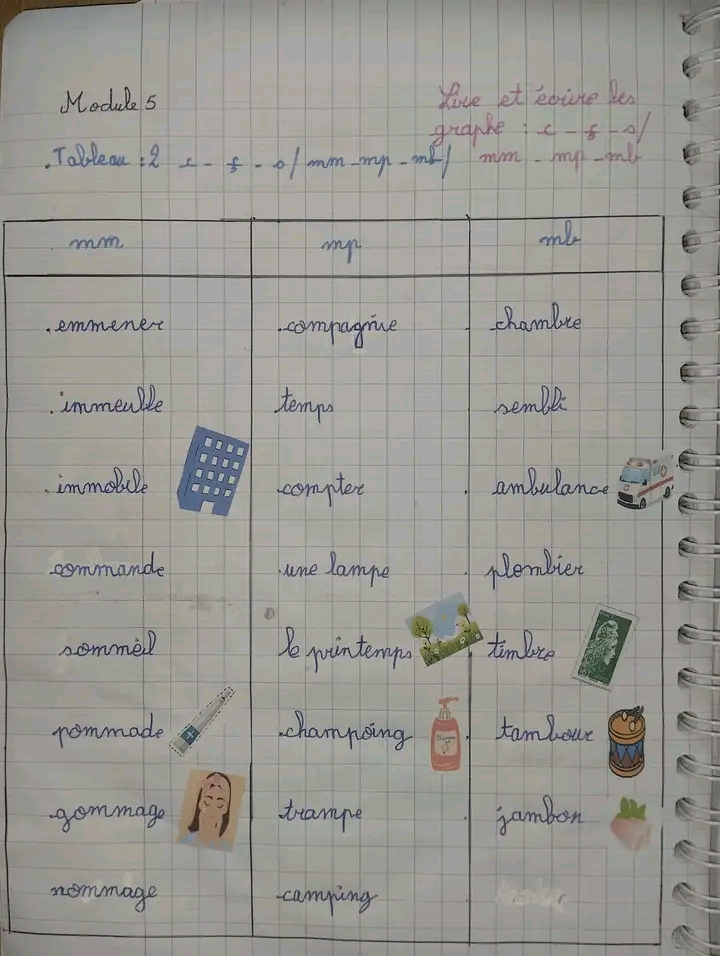 Module 5
Lire et écrire les
graphe : c - ç - s/
mm - mp - mb
.Tableau : 2 c - ç - s/ mm - mp - mb/
mm mp mb
.emmener .compagnie .chambre
.immeuble temps sembli
.immobile compter .ambulance
commande .une lampe .plombier
sommeil le printemps timbre
pommade .champoing .tambour
gommage trampe .jambon
nommage camping